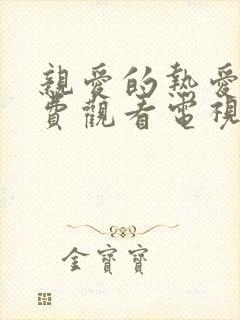 親愛的熱愛
費觀看電視
金寶寶